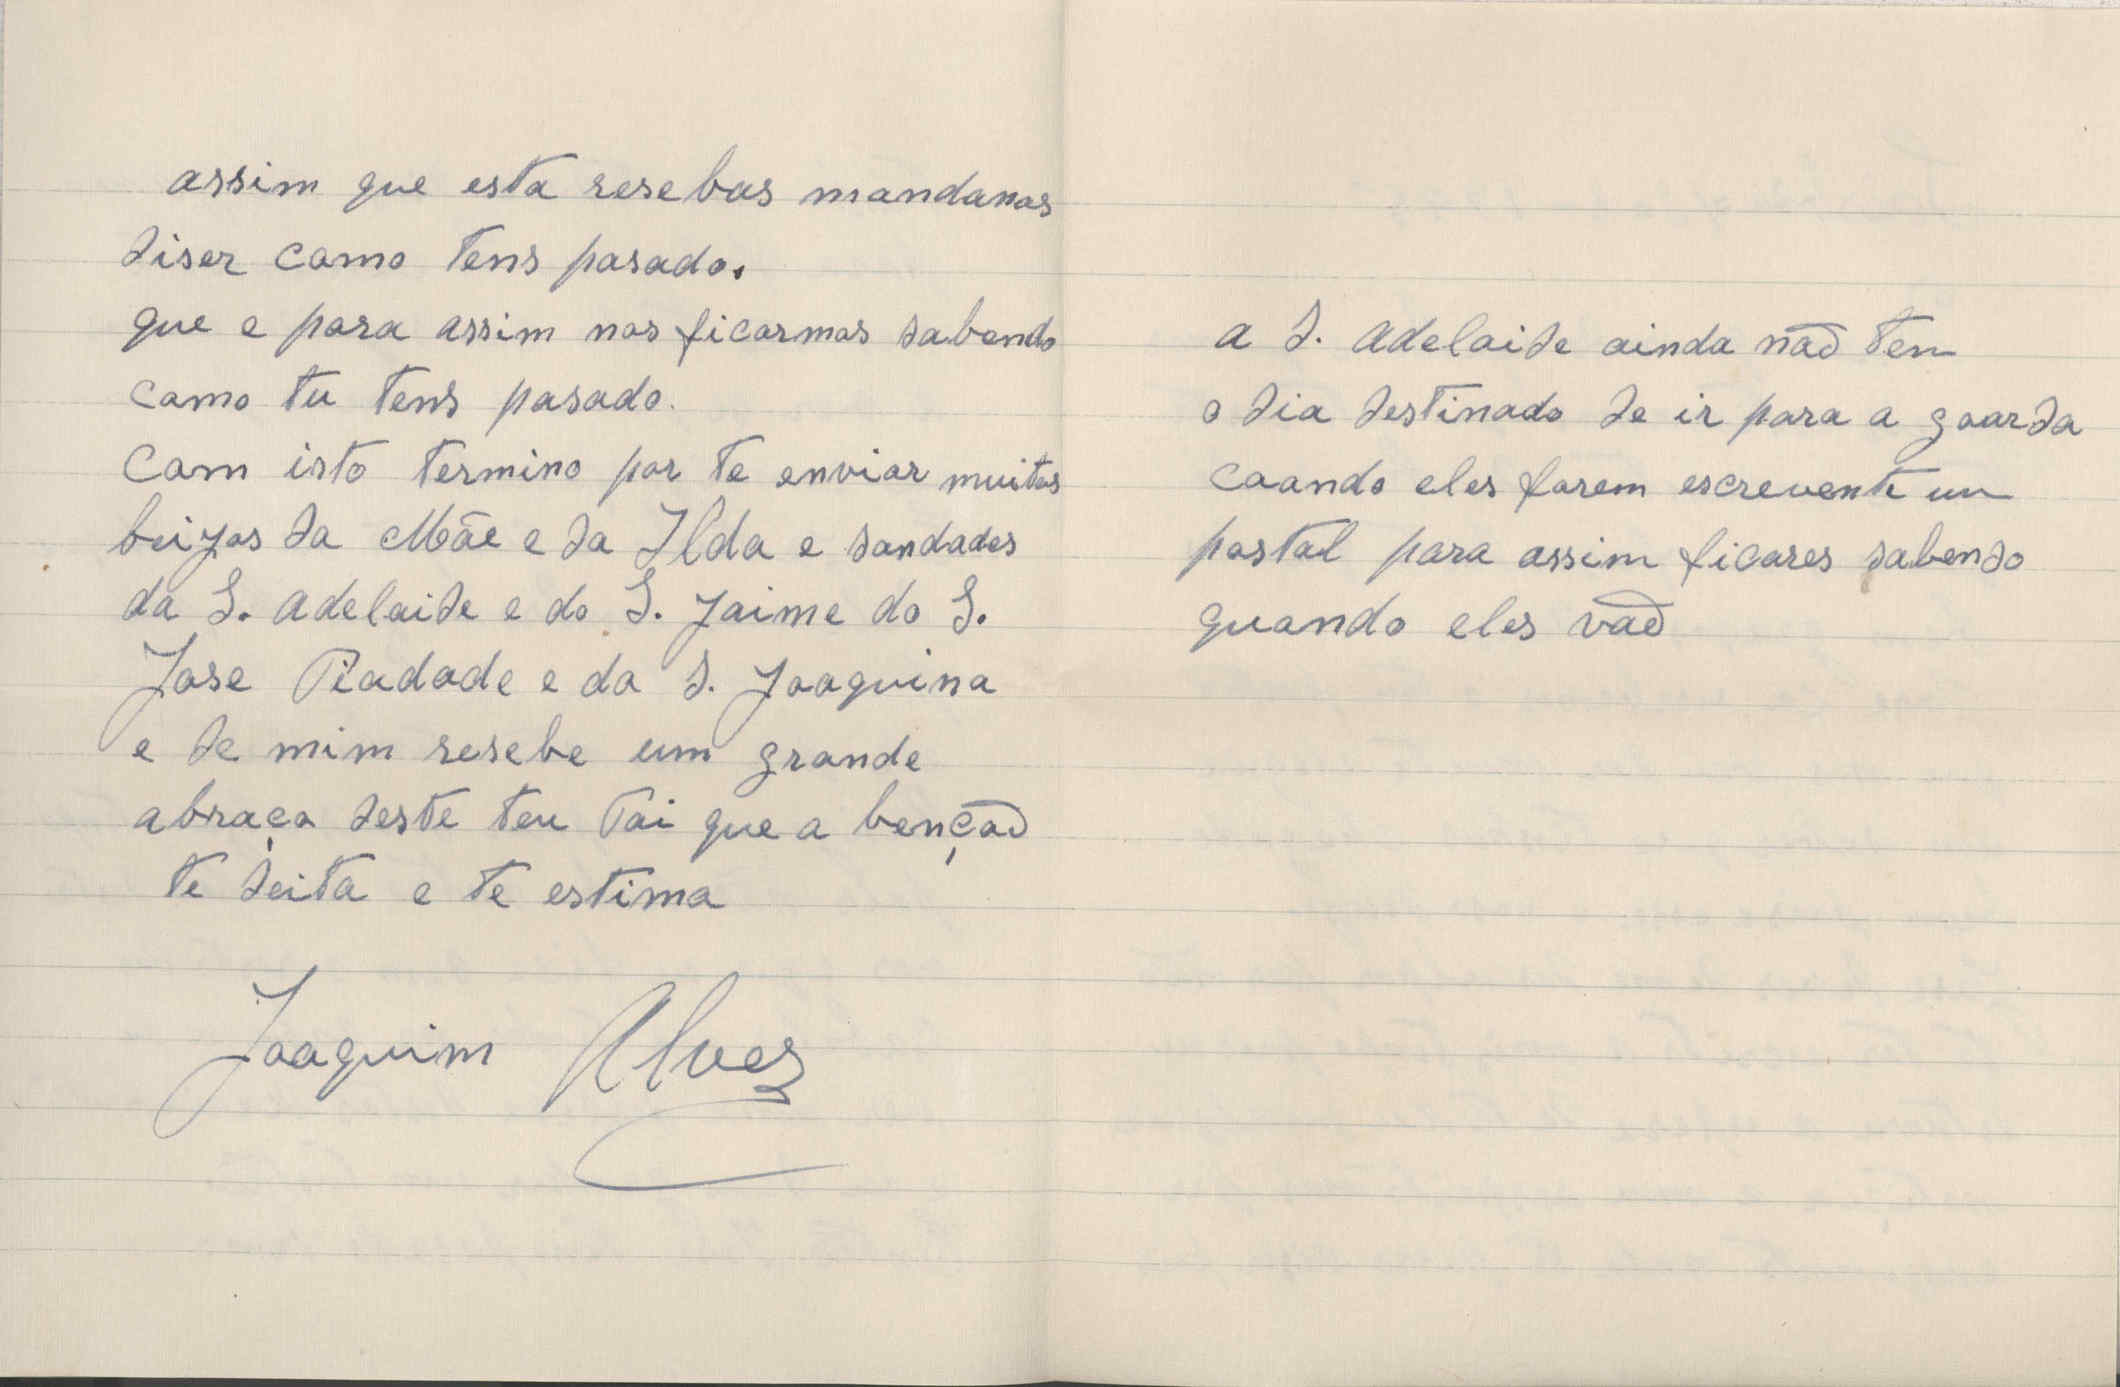 assim que esta resebas mandanos
diser como tens pasado.
que e para assim nos ficarmos sabendo
como tu tens pasado.
com isto termino por te enviar muitos
beijos da Mãe e da Ilda e saudades
da S. Adelaide e do S. Jaime do S.
Jose Piadade e da S. Joaquina
e de mim resebe um grande
abraço deste teu Pai que a benção
te deita e te estima
Joaquim Alves
a S. Adelaide ainda não tem
o dia destinado de ir para a goarda
coando eles forem escrevente um
postal para assim ficares sabendo
quando eles vão